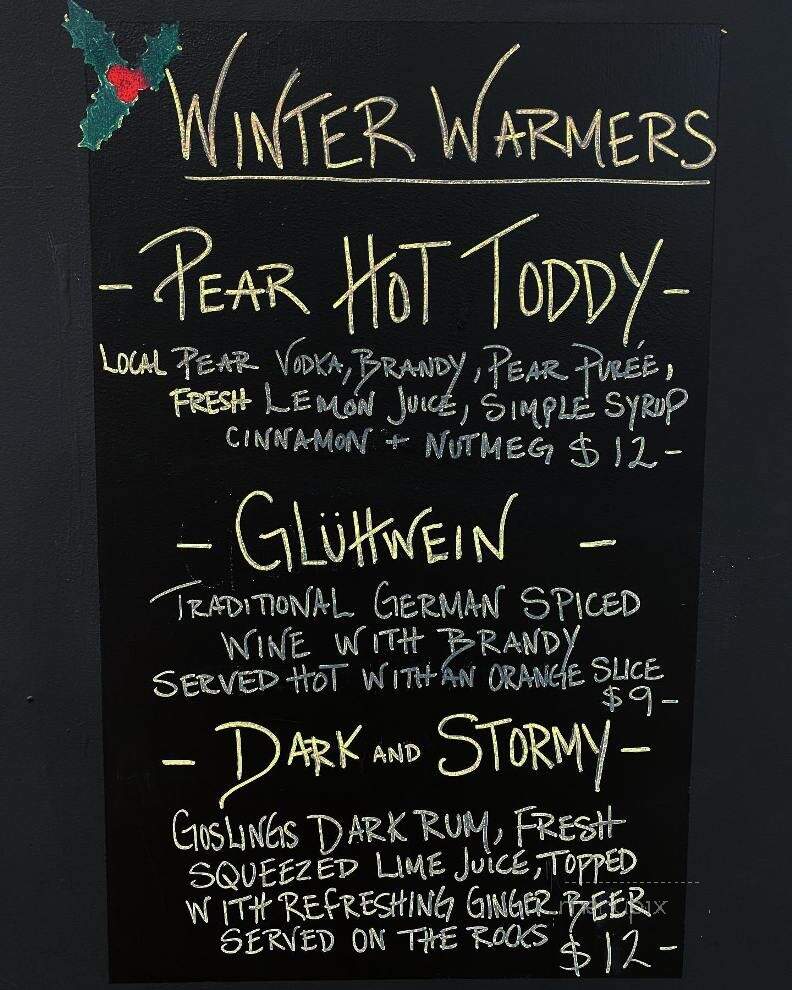 WINTER WARMERS
- PEAR HOT TODDY -
LOCAL PEAR VODKA, BRANDY, PEAR PURÉE,
FRESH LEMON JUICE, SIMPLE SYRUP
CINNAMON + NUTMEG $12-
- GLÜHWEIN -
TRADITIONAL GERMAN SPICED
WINE WITH BRANDY
SERVED HOT WITH AN ORANGE SLICE
$9-
- DARK AND STORMY -
GOSLINGS DARK RUM, FRESH
SQUEEZED LIME JUICE, TOPPED
WITH REFRESHING GINGER BEER
SERVED ON THE ROCKS $12-